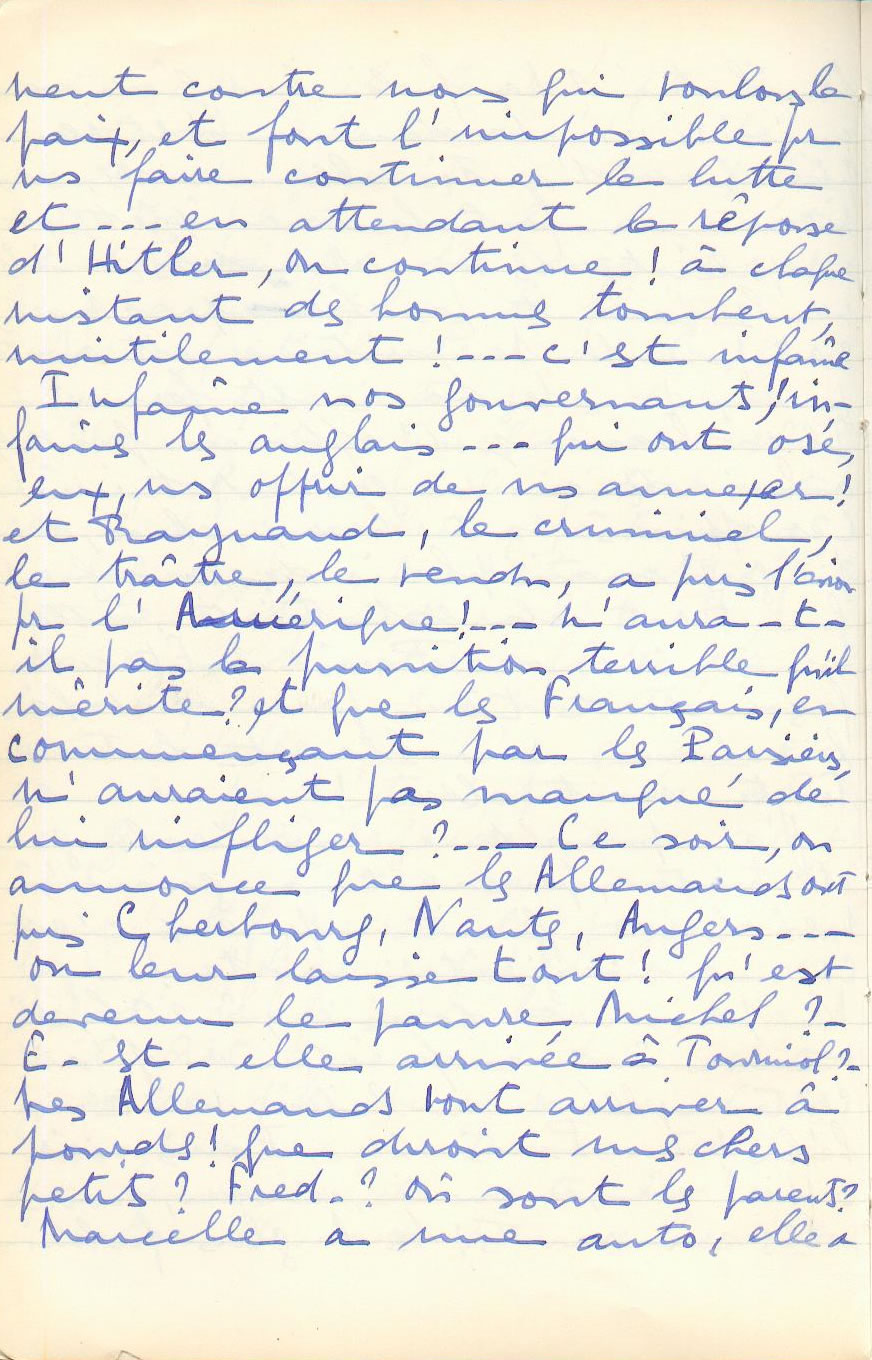 nent contre nous qui voulons la
paix, et font l'impossible pr
ns faire continuer la lutte
et --- en attendant la réponse
d'Hitler, on continue ! à chaque
instant des hommes tombent,
inutilement ! --- c'est infâme
Infâme nos gouvernants, ! in-
fâmes les anglais --- qui ont osé,
eux, ns offrir de ns annexer !
et Raynaud, le criminel,
le traître, le vendu, a pris l'avion
pr l'Amérique ! --- n'aura-t-
il pas la punition terrible qu'il
mérite ? et que les Français, en
commençant par les Parisiens,
n'auraient pas manqué de
lui infliger ? --- Ce soir, on
annonce que les Allemands ont
pris Cherbourg, Nantes, Angers ---
on leur laisse tout ! qu'est
devenu le pauvre Michel ? -
E - st - elle arrivée à Tourniol ? -
Les Allemands vont arriver à
! que diront mes chers
petits ? Fred. ? Où sont les parents ?
Marcelle a une auto, elle a